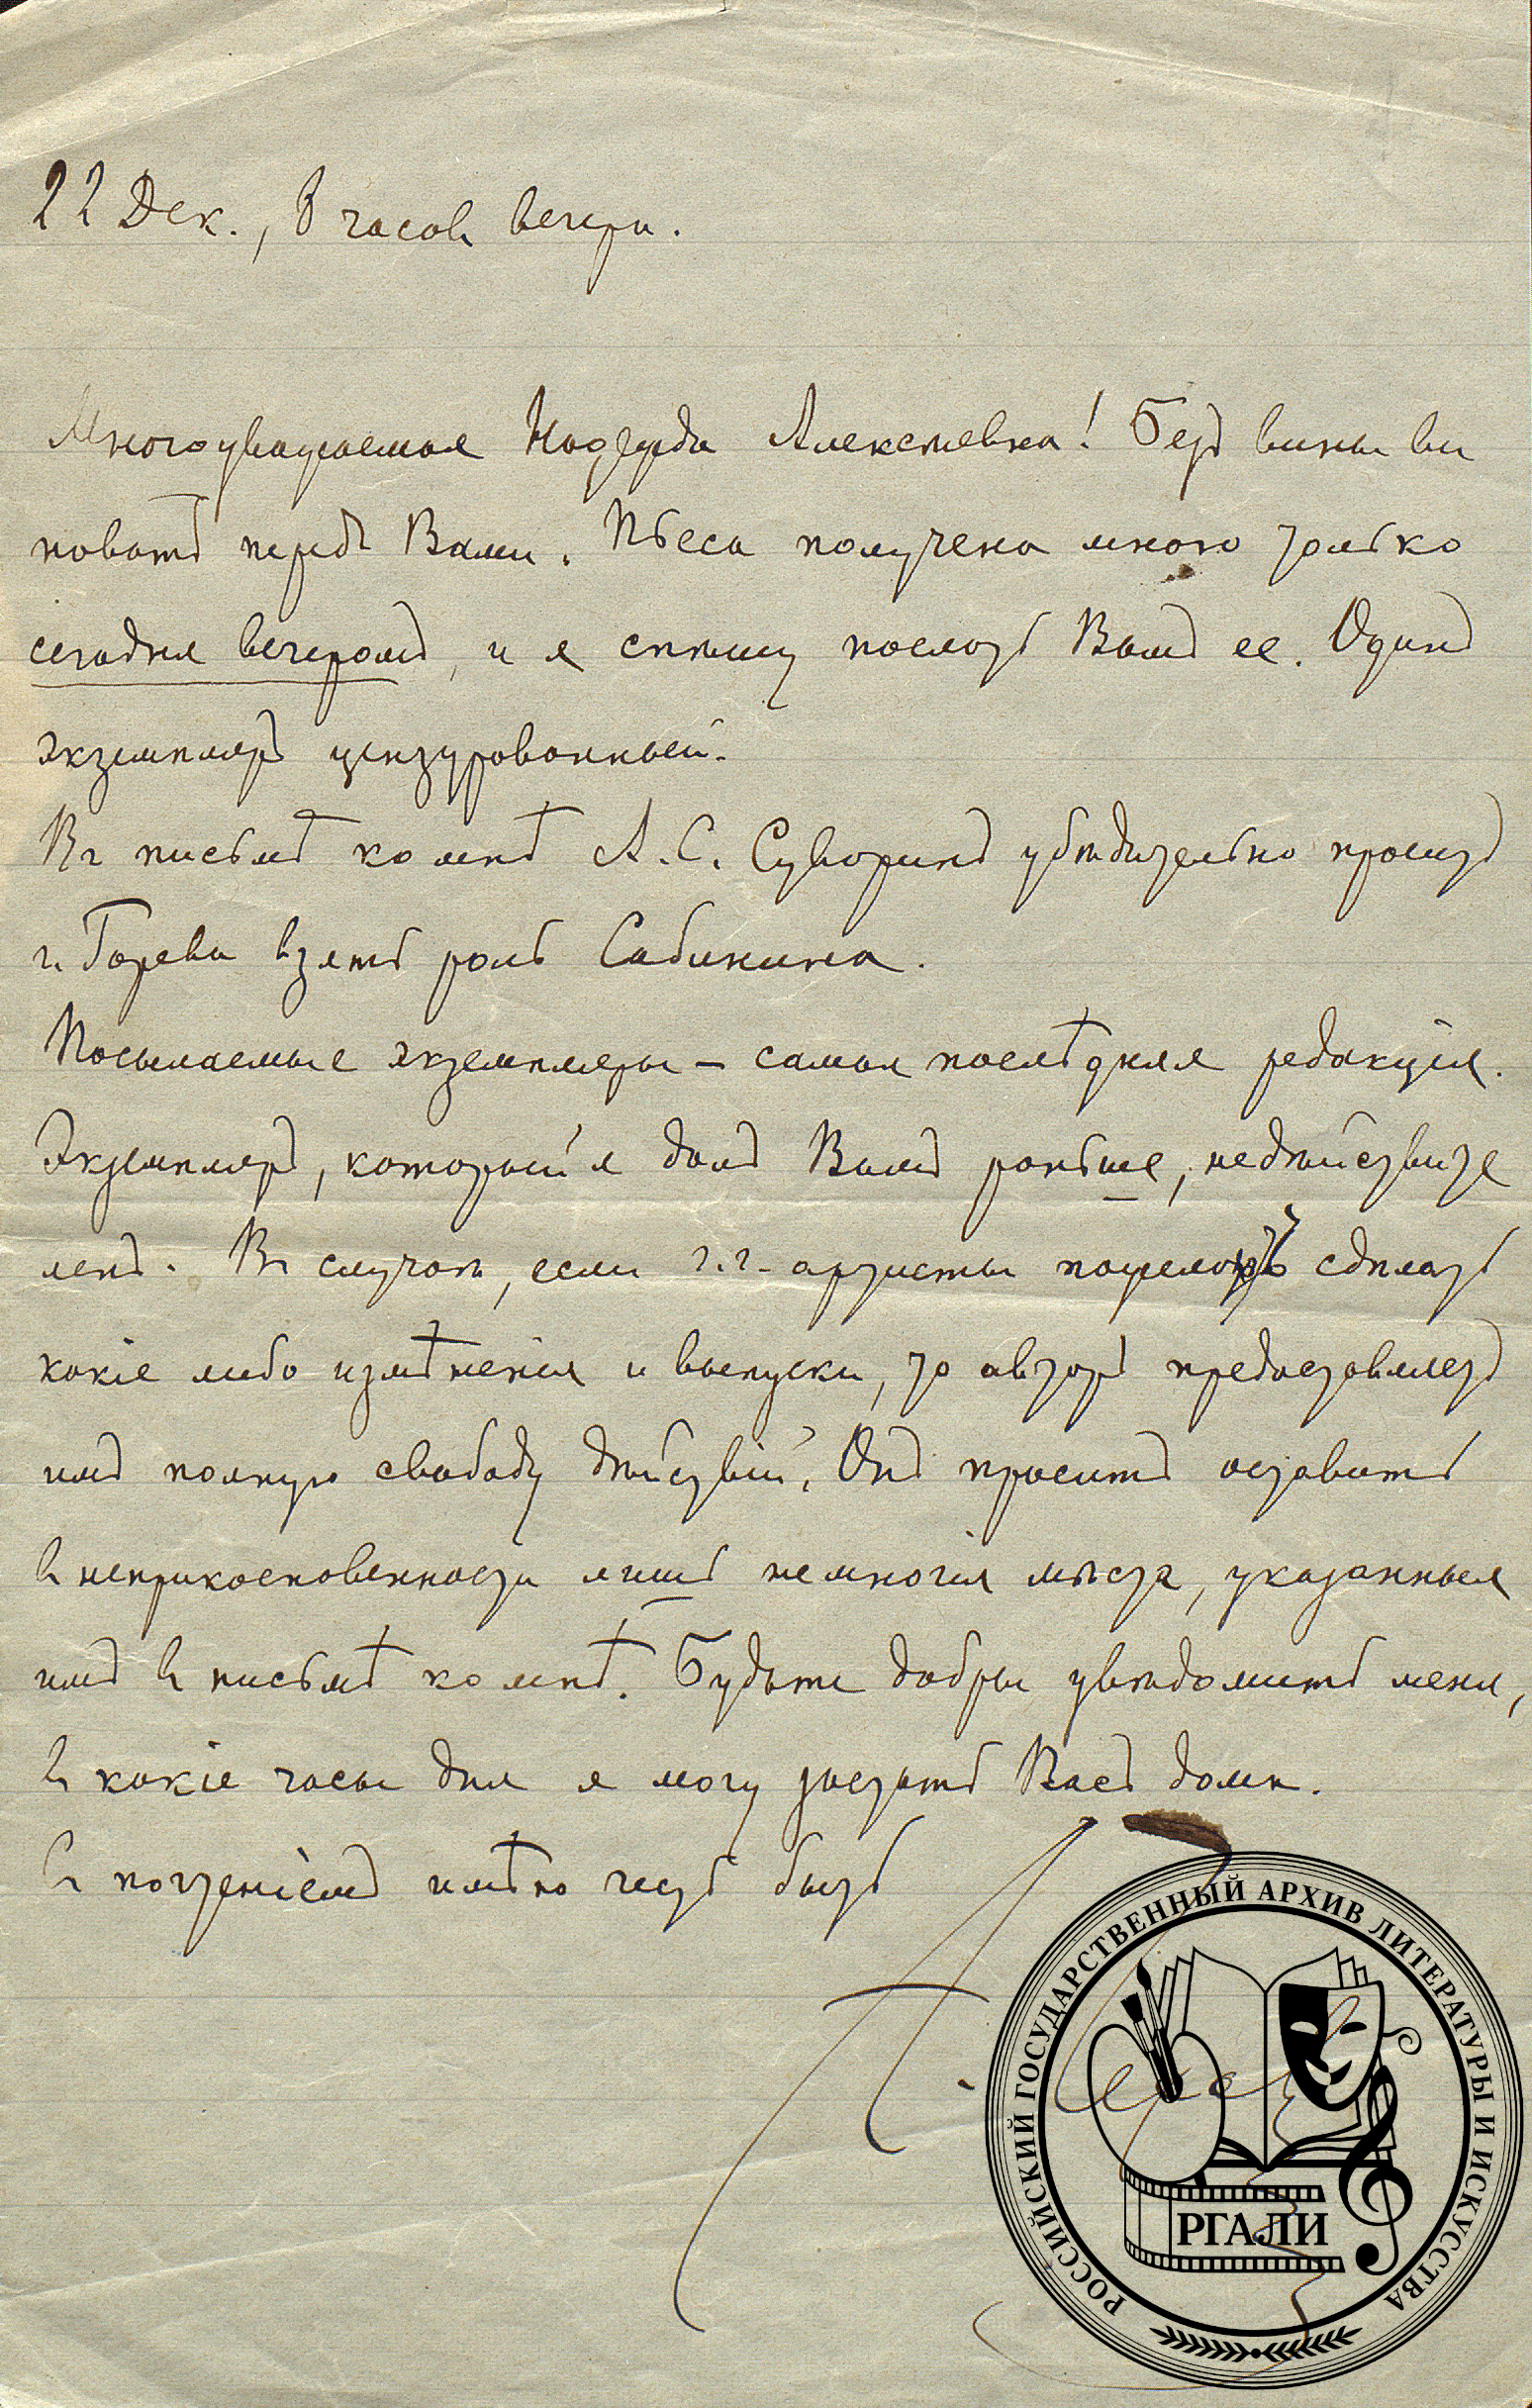 22 Дек., 8 часовъ вечера.
Многоуважаемая Надежда Алексѣевна! Безъ вины ви
новатъ передъ Вами. Пьеса получена мною только
сегодня вечеромъ, и я спѣшу послать Вамъ ее. Одинъ
экземпляръ цензурованный.
Въ письмѣ ко мнѣ А. С. Суворинъ убѣдительно проситъ
г. Горева взять роль Сабинина.
Посылаемые экземпляры — самая послѣдняя редакція.
Экземпляръ, который я далъ Вамъ раньше, недѣйствите
ленъ. Въ случаѣ, если г.г. артисты пожелаютъ сдѣлать
какіе либо измѣненія и выпуски, то авторъ предоставляетъ
имъ полную свободу дѣйствій. Онъ проситъ оставить
въ неприкосновенности лишь немногія мѣста, указанныя
имъ въ письмѣ ко мнѣ. Будьте добры увѣдомить меня,
въ какіе часы дня я могу застать Васъ дома.
Съ почтеніемъ имѣю честь быть
А. Чехов
РОССИЙСКИЙ ГОСУДАРСТВЕННЫЙ АРХИВ ЛИТЕРАТУРЫ И ИСКУССТВА
РГАЛИ